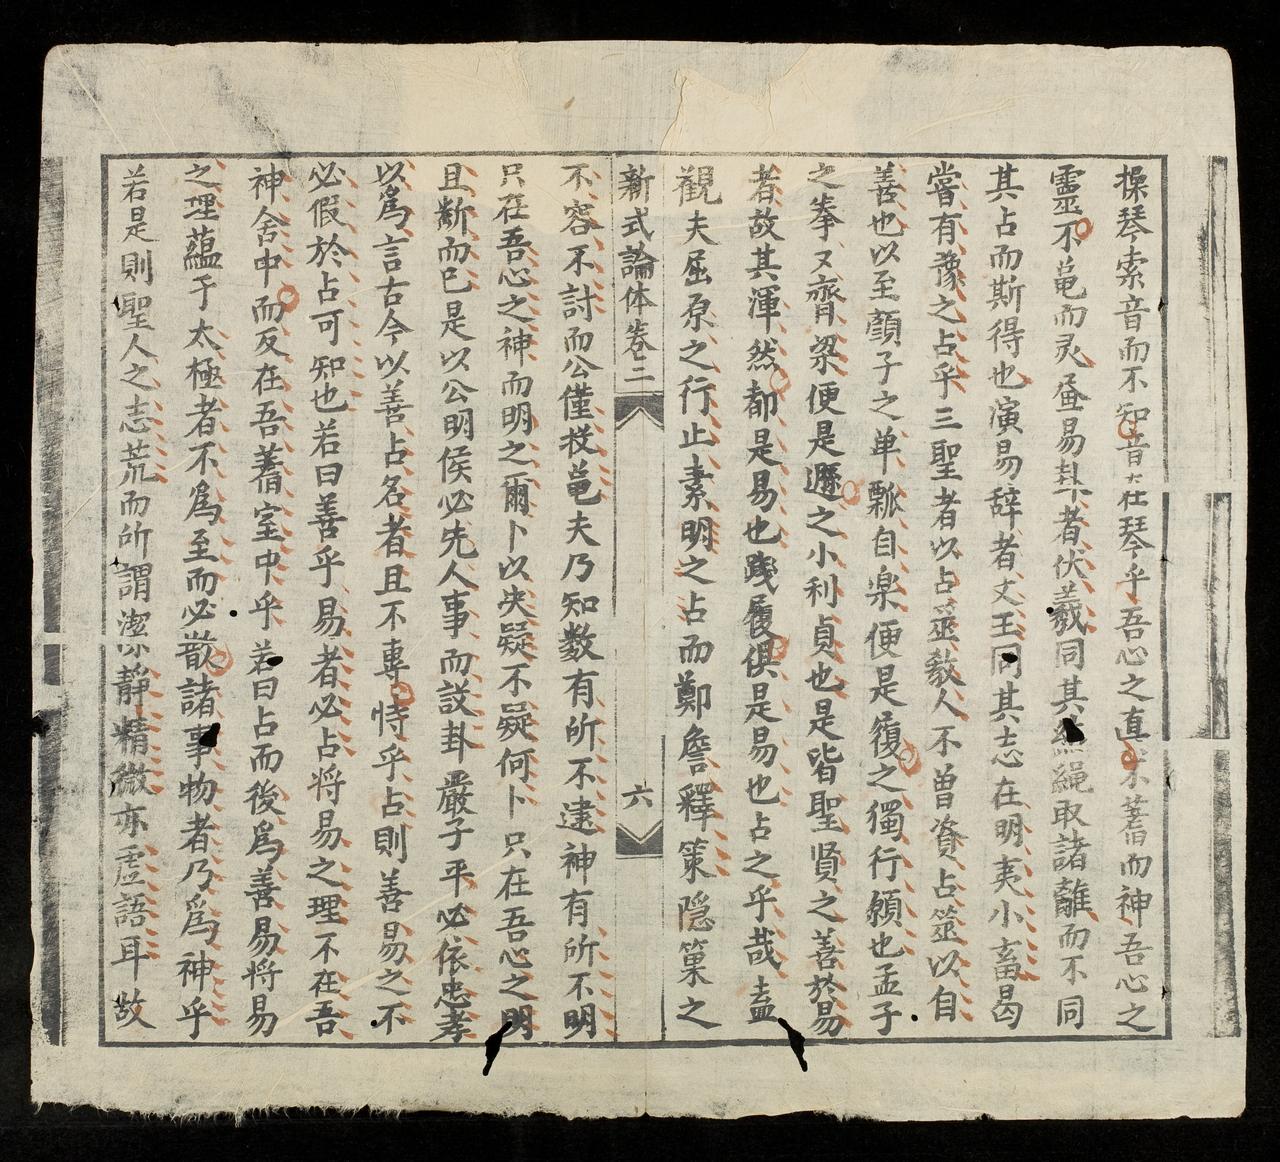 操琴索音而不知音在琴乎吾心之直不蓍而神吾心之
靈不亀而灵畫易卦者伏羲同其結繩取諸離而不同
其占而斯得也演易辞者文王同其志在明夷小畜曷
嘗有豫之占乎三聖者以占筮教人不曾資占筮以自
善也以至顏子之单瓢自楽便是履之獨行願也孟子
之奉又齊梁便是遯之小利貞也是皆聖贤之善於易
者故其渾然都是易也踐履俱是易也占之乎哉盍
觀夫屈原之行止素明之占而鄭詹釋策隐菓之
新式論体卷二 六
不容不討而公僅授亀夫乃知数有所不逮神有所不明
只在吾心之神而明之爾卜以决疑不疑何卜只在吾心之明
且断而已是以公明侯必先人事而談卦嚴子平必依忠孝
以爲言古今以善占名者且不專恃乎占則善易之不
必假於占可知也若曰善乎易者必占将易之理不在吾
神舍中而反在吾蓍室中乎若曰占而後爲善易将易
之埋蘊于太極者不爲至而必散諸事物者乃爲神乎
若是則聖人之志荒而所謂潔静精微亦虚語耳故